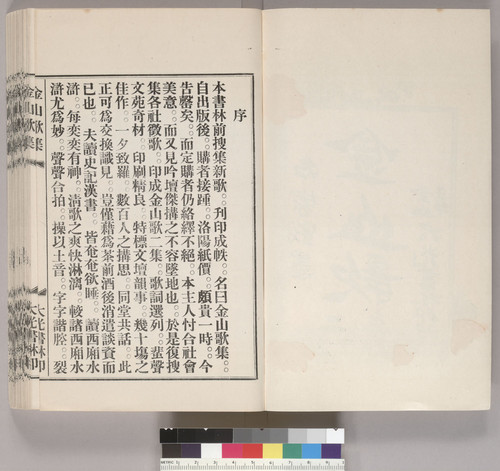 序
本書林前搜集新歌。刊印成帙。名曰金山歌集。
自出版後。購者接踵。洛陽紙價。頗貴一時。今
告罄矣。而定購者仍絡繹不絕。本主人忖合社會
美意。而又見吟壇傑搆之不容墜地也。於是復搜
集各社徵歌。印成金山歌二集。歌詞選列。蜚聲
文苑奇材。印刷精良。特標文壇韻事。幾十塲之
佳作。一夕致羅。數百人之搆思。同堂共話。此
正可爲交換識見。豈僅藉爲茶前酒後消遣談資而
已也。夫讀史記漢書。皆奄奄欲睡。讀西廂水
滸。每奕奕有神。清歌之爽快淋漓。較諸西廂水
滸尤爲妙。聲聲合拍。操以土音。字字諧腔。裂
金山歌集
大光書林印